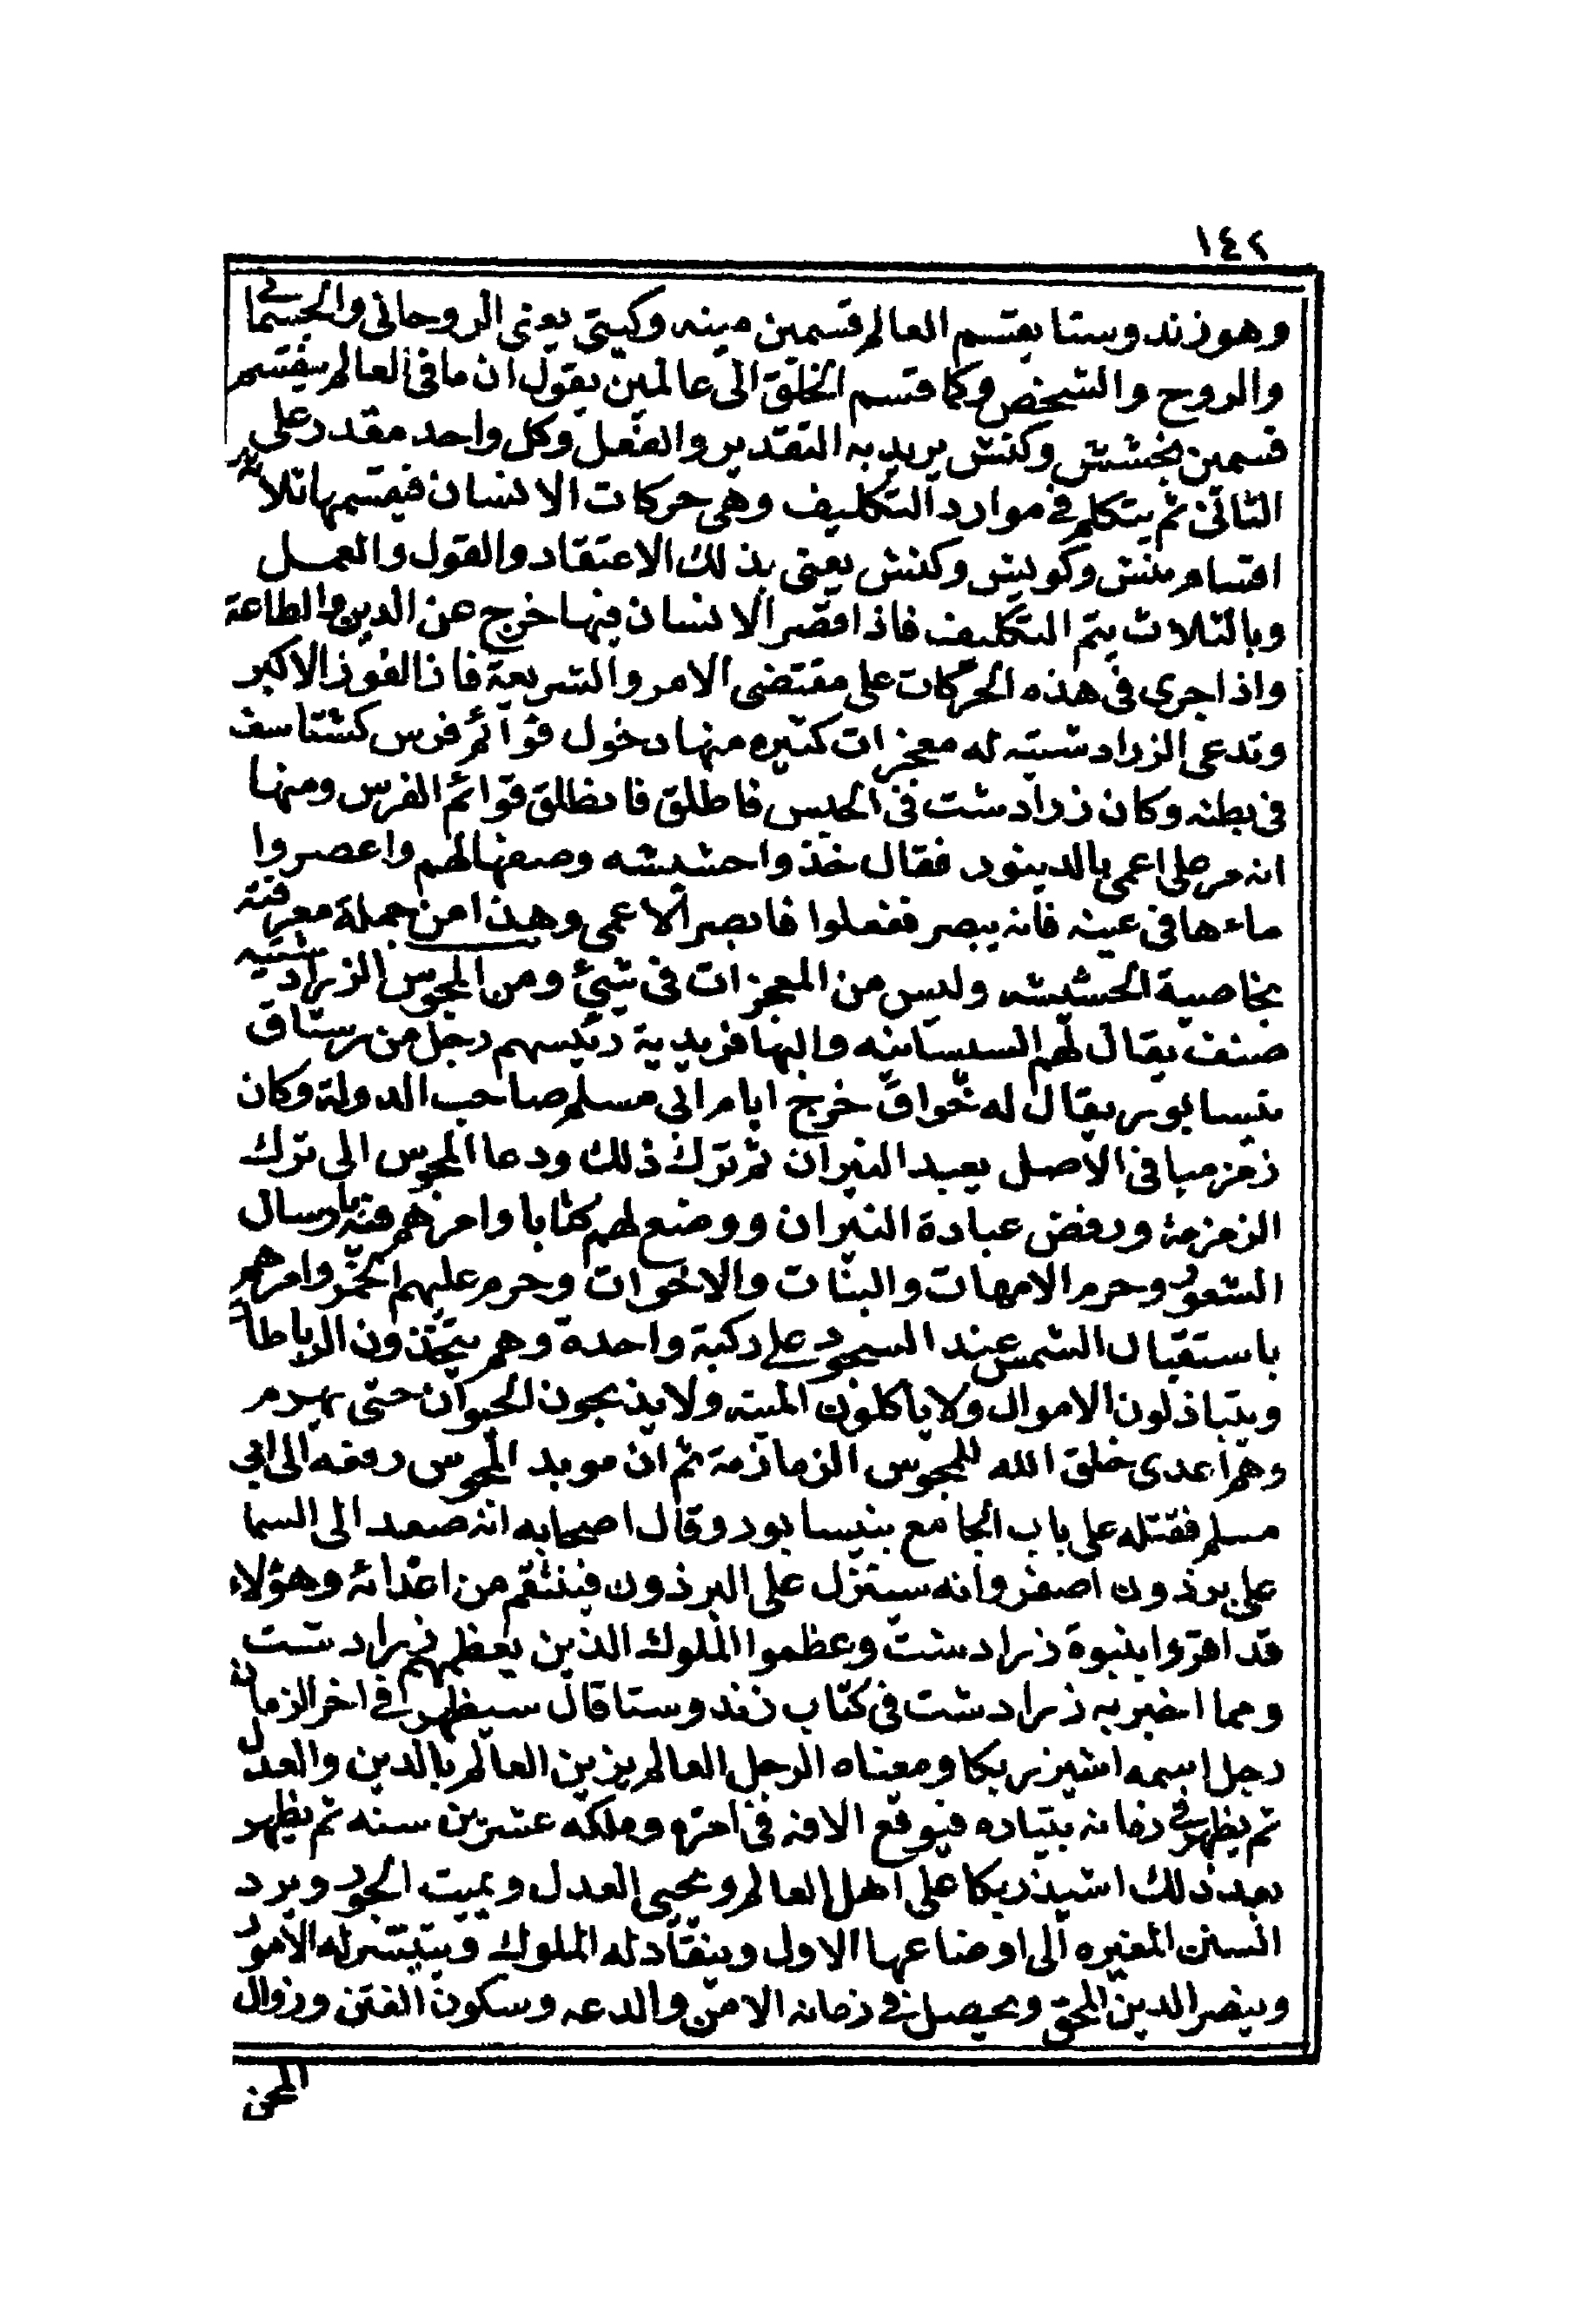 ١٤٢
وهو زند وستا يقسم العالم قسمين مينه وكيتى يعنى الروحانى والجسمانى
والروح والشخص وكما قسم الخلق الى عالمين يقول ان ما فى العالم ينقسم
قسمين بخشش وكنش يريد به التقدير والفعل وكل واحد مقدر على
الثانى ثم يتكلم فى موارد التكليف وهى حركات الانسان فيقسمها ثلاثة
اقسام منش وكويش وكنش يعنى بذلك الاعتقاد والقول والعمل
وبالثلاث يتم التكليف فاذا قصر الانسان فيها خرج عن الدين والطاعة
واذا جرى فى هذه الحركات على مقتضى الامر والشريعة فاز الفوز الاكبر
وتدعى الزرادشتيه له معجزات كثيره منها دخول قوائم فرس كشتاسف
فى بطنه وكان زرادشت فى الحبس فاطلق فانطلق قوائم الفرس ومنها
انه مر على اعمى بالدينور فقال خذوا حشيشه وصفها لهم واعصروا
ماءها فى عينه فانه يبصر ففعلوا فابصر الاعمى وهذا من جملة معرفته
بخاصية الحشيشه وليس من المعجزات فى شئ ومن المجوس الزرادشتيه
صنف يقال لهم السيسانيه والبهافريدية رئيسهم رجل من رستاق
نيسابور يقال له خواف خرج ايام ابى مسلم صاحب الدولة وكان
زمزميا فى الاصل يعبد النيران ثم ترك ذلك ودعا المجوس الى ترك
الزمزمة ورفض عبادة النيران ووضع لهم كتابا وامرهم فيه بارسال
الشعور وحرم الامهات والبنات والاخوات وحرم عليهم الخمر وامرهم
باستقبال الشمس عند السجود على ركبة واحدة وهم يتخذون الرباطات
ويتباذلون الاموال ولا ياكلون الميته ولا يذبحون الحيوان حتى يهرم
وهم اعدى خلق الله للمجوس الزمازمة ثم ان موبد المجوس رفعه الى ابى
مسلم فقتله على باب الجامع بنيسابور وقال اصحابه انه صعد الى السما
على برذون اصفر وانه سينزل على البرذون فينتقم من اعدائه وهؤلاء
قد اقروا بنبوة زرادشت وعظموا الملوك الذين يعظمهم زرادشت
ومما اخبر به زرادشت فى كتاب زند وستا قال سيظهر فى اخر الزمان
رجل اسمه اشيزريكا ومعناه الرجل العالم يزين العالم بالدين والعدل
ثم يظهر فى زمانه بتياره فيوقع الافه فى امره وملكه عشرين سنه ثم يظهر
بعد ذلك اشيذريكا على اهل العالم ويحيى العدل ويميت الجور ويرد
السنن المغيره الى اوضاعها الاول وينقاد له الملوك ويتيسر له الامور
وينصر الدين الحق ويحصل فى زمانه الامن والدعه وسكون الفتن وزوال
المحن